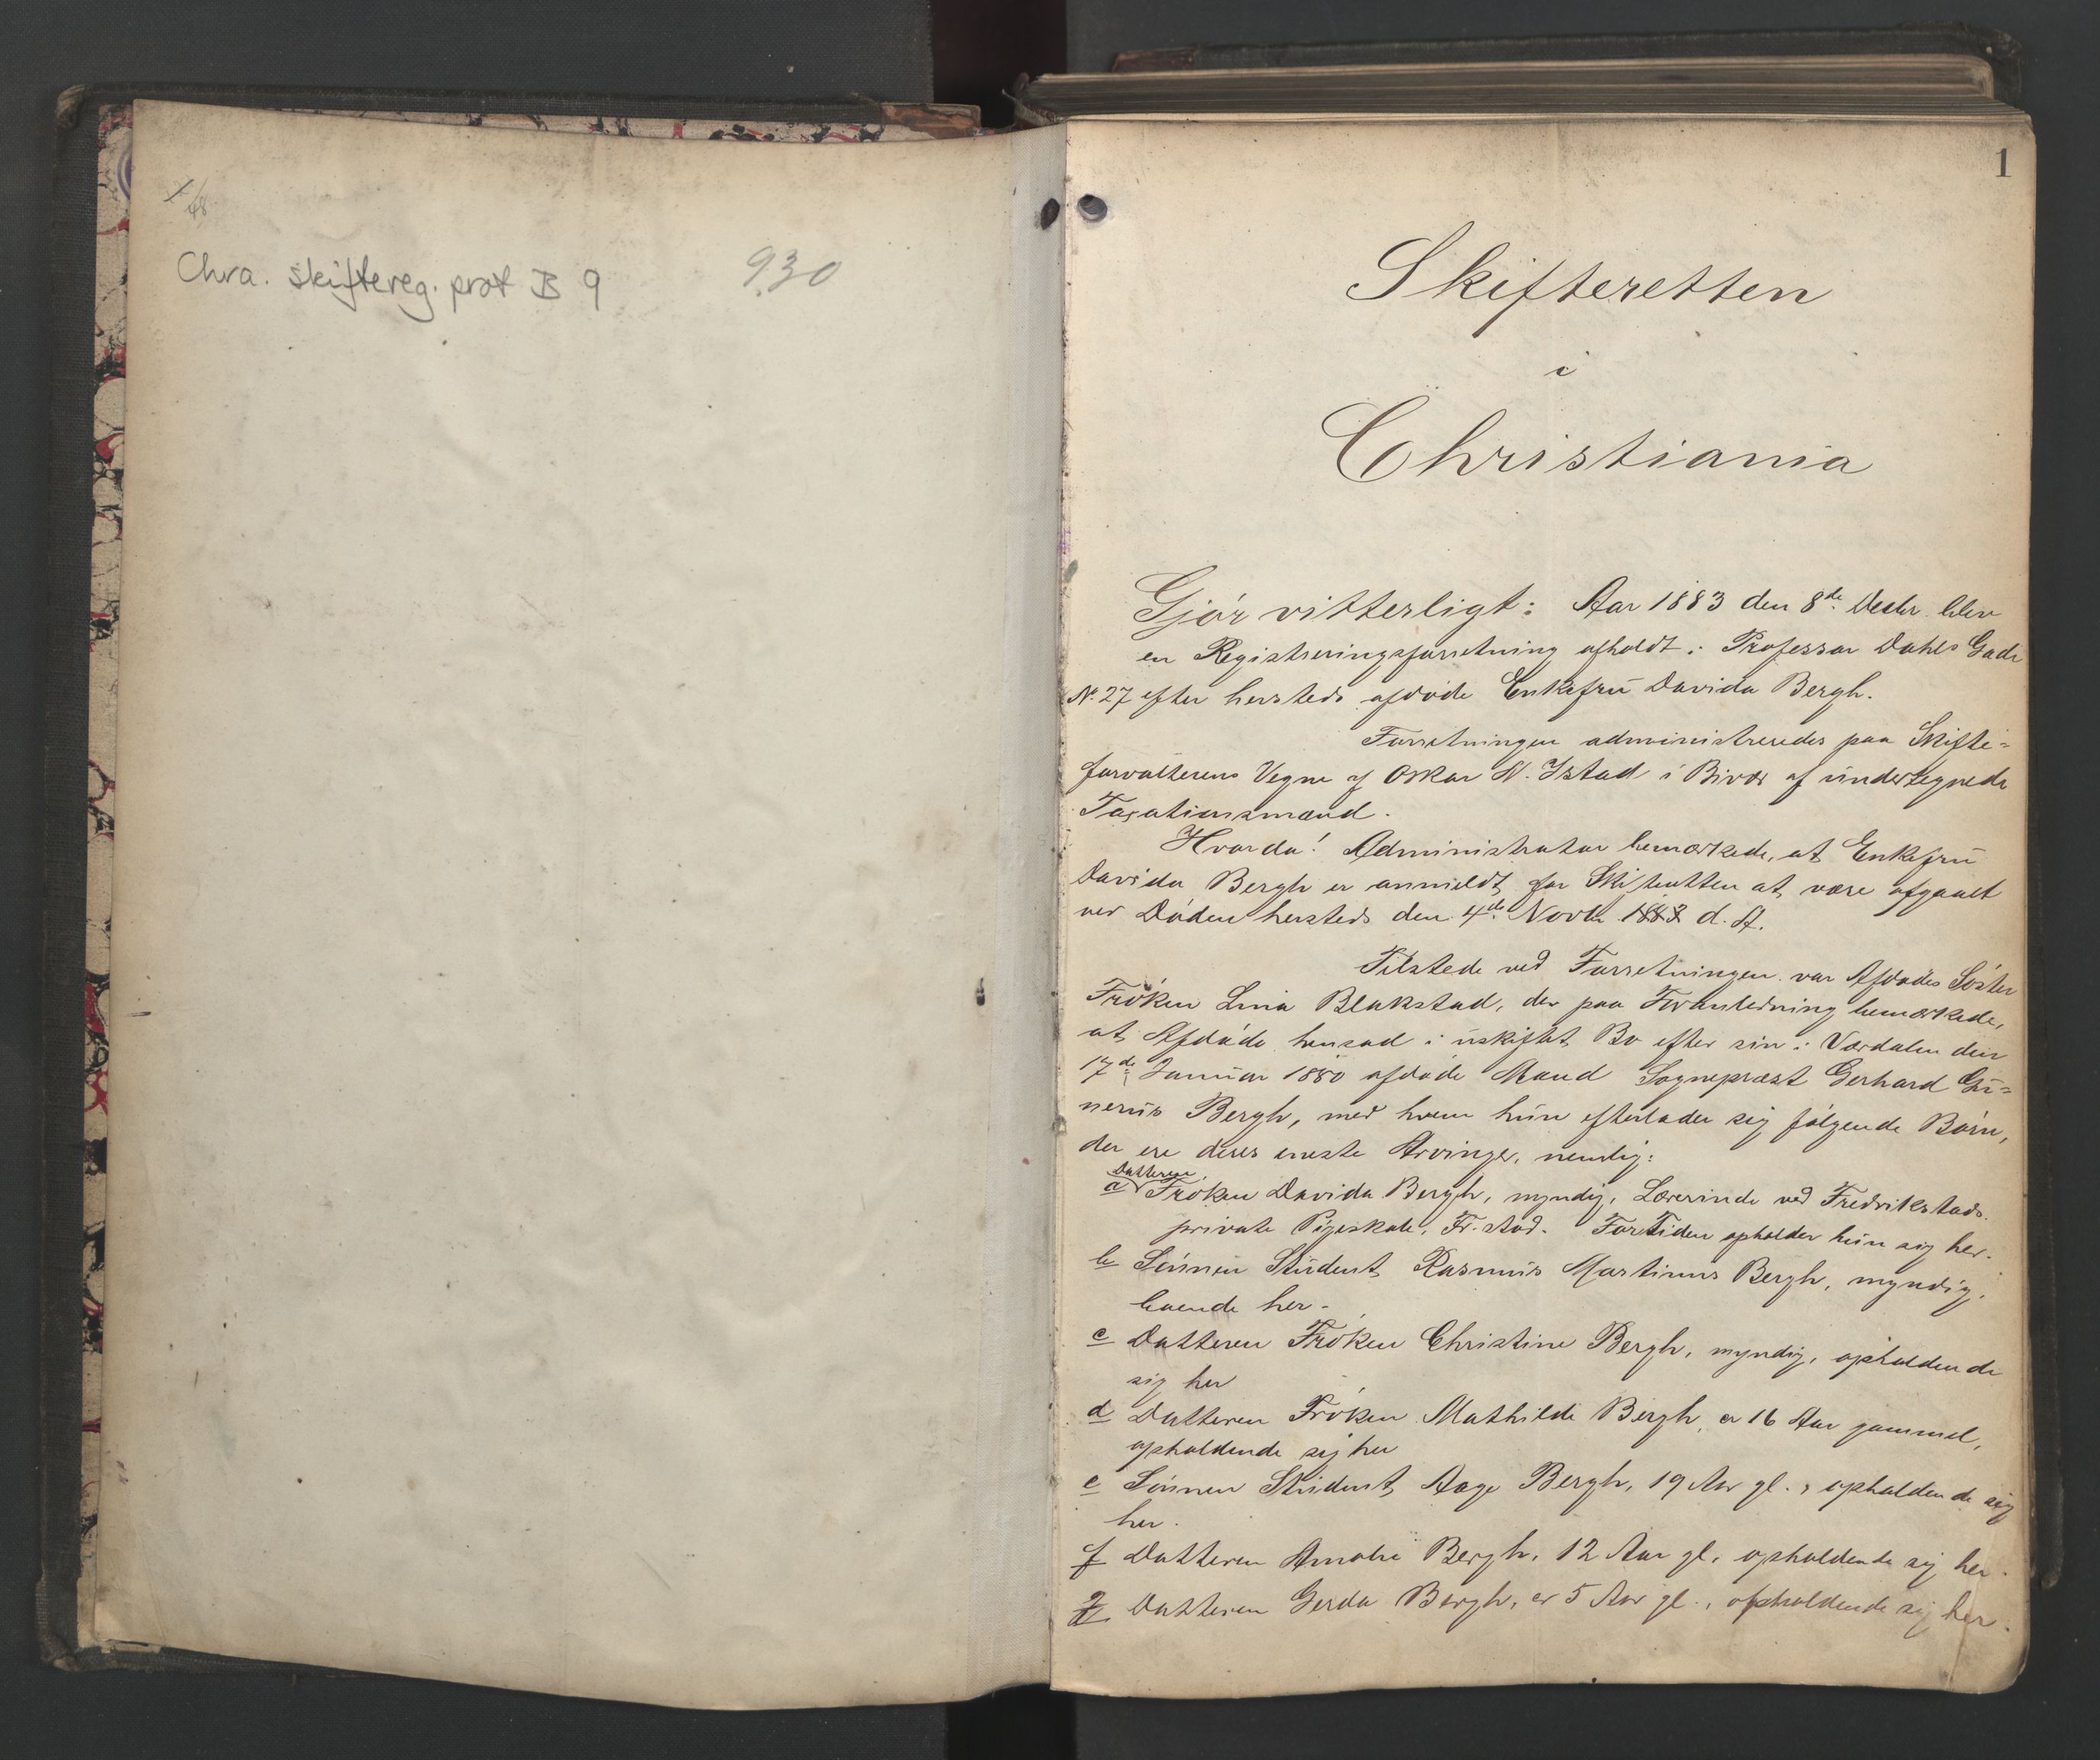 1/48
Chra. skiftereg. prot B 9 930
1
Skifteretten
i
Christiania
Gjör vitterligt: Aar 1883 den 8de Decbr. blev
en Registreringsforretning afholdt i Professor Dahls Gade
No. 27 efter hersteds afdöde Enkefru Davida Bergh.
Forretningen administreredes paa Skifte-
forvalterens Vegne af Oskar N. Ystad i Bivær af undertegnede
Taxationsmænd.
Hvorda! Administrator bemærkede, at Enkefru
Davida Bergh er anmeldt for Skifteretten at være afgaaet
ved Döden hersteds den 4de Novbr. 1883 d. A.
Tilstede ved Forretningen var Afdödes Söster
Fröken Lina Blakstad, der paa Foranledning bemærkede,
at Afdöde hensad i uskiftet Bo efter sin i Værdalen den
17de Januar 1880 afdöde Mand Sognepræst Gerhard Gu-
nerus Bergh, med hvem hun efterlader sig fölgende Börn,
der ere deres eneste Arvinger, nemlig:
Datteren
a Fröken Davida Bergh, myndig, Lærerinde ved Fredrikstads
private Pigeskole, Fr.stad. For Tiden opholder hun sig her.
b Sönnen Student Rasmus Martinus Bergh, myndig,
boende her.
c Datteren Fröken Christine Bergh, myndig, opholdende
sig her
d Datteren Fröken Mathilde Bergh, er 16 Aar gammel,
opholdende sig her
e Sönnen Student Aage Bergh, 19 Aar gl., opholdende sig
her.
f Datteren Amalie Bergh, 12 Aar gl. opholdende sig her.
g Datteren Gerda Bergh, er 5 Aar gl., opholdende sig her.